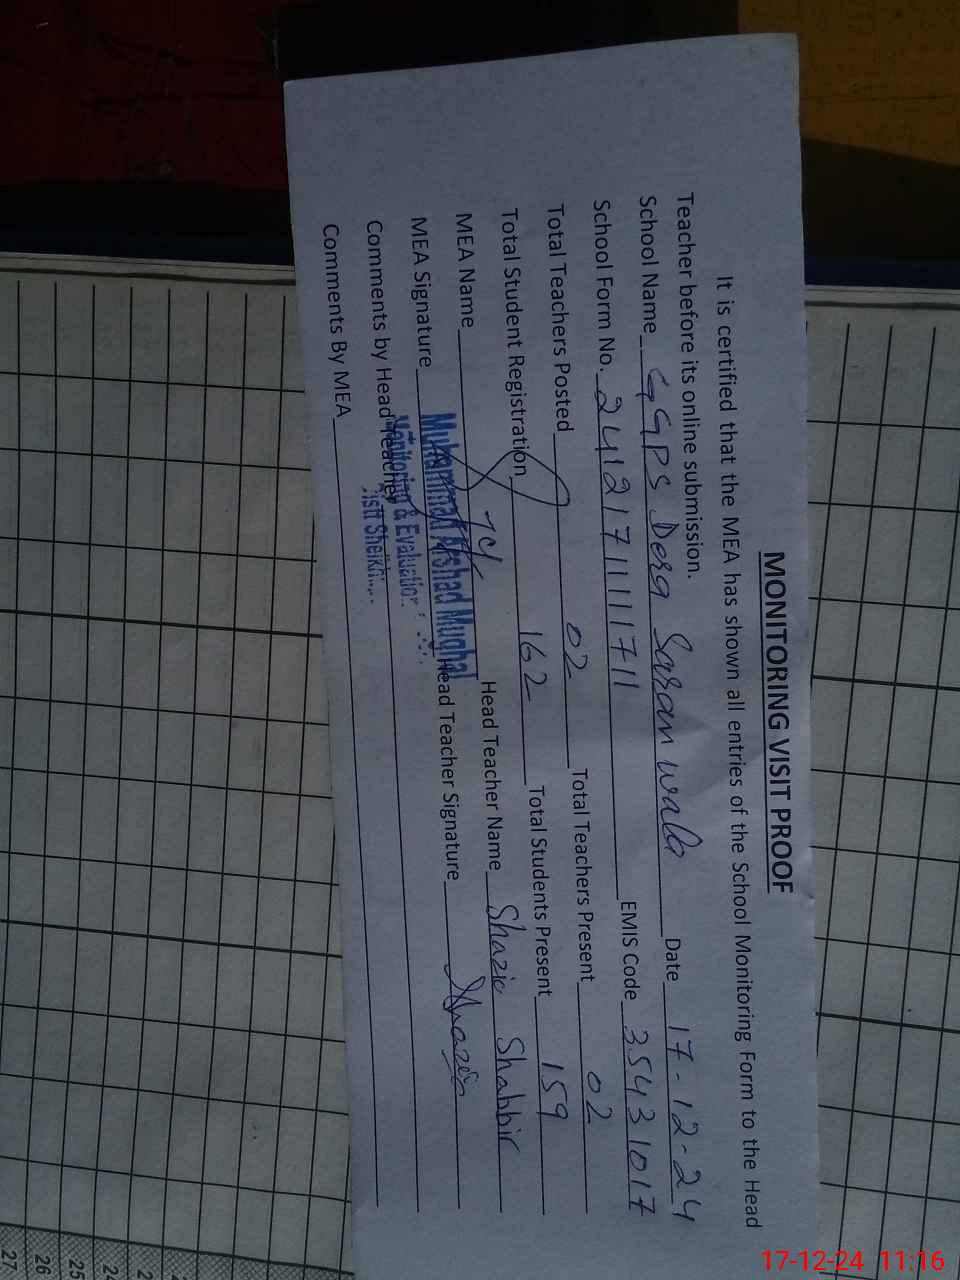 MONITORING VISIT PROOF
It is certified that the MEA has shown all entries of the School Monitoring Form to the Head
Teacher before its online submission.
School Name GGPS Dera Saran wala Date 17-12-24
School Form No. 241217111711 EMIS Code 35431017
Total Teachers Posted 02 Total Teachers Present 02
Total Student Registration 162 Total Students Present 159
MEA Name Head Teacher Name Shazia Shabbir
MEA Signature Head Teacher Signature Shazia
Muhammad Arshad Mughal
Monitoring & Evaluation
Comments by Head Teacher
Comments By MEA
24
25
26
27
17-12-24 11:16